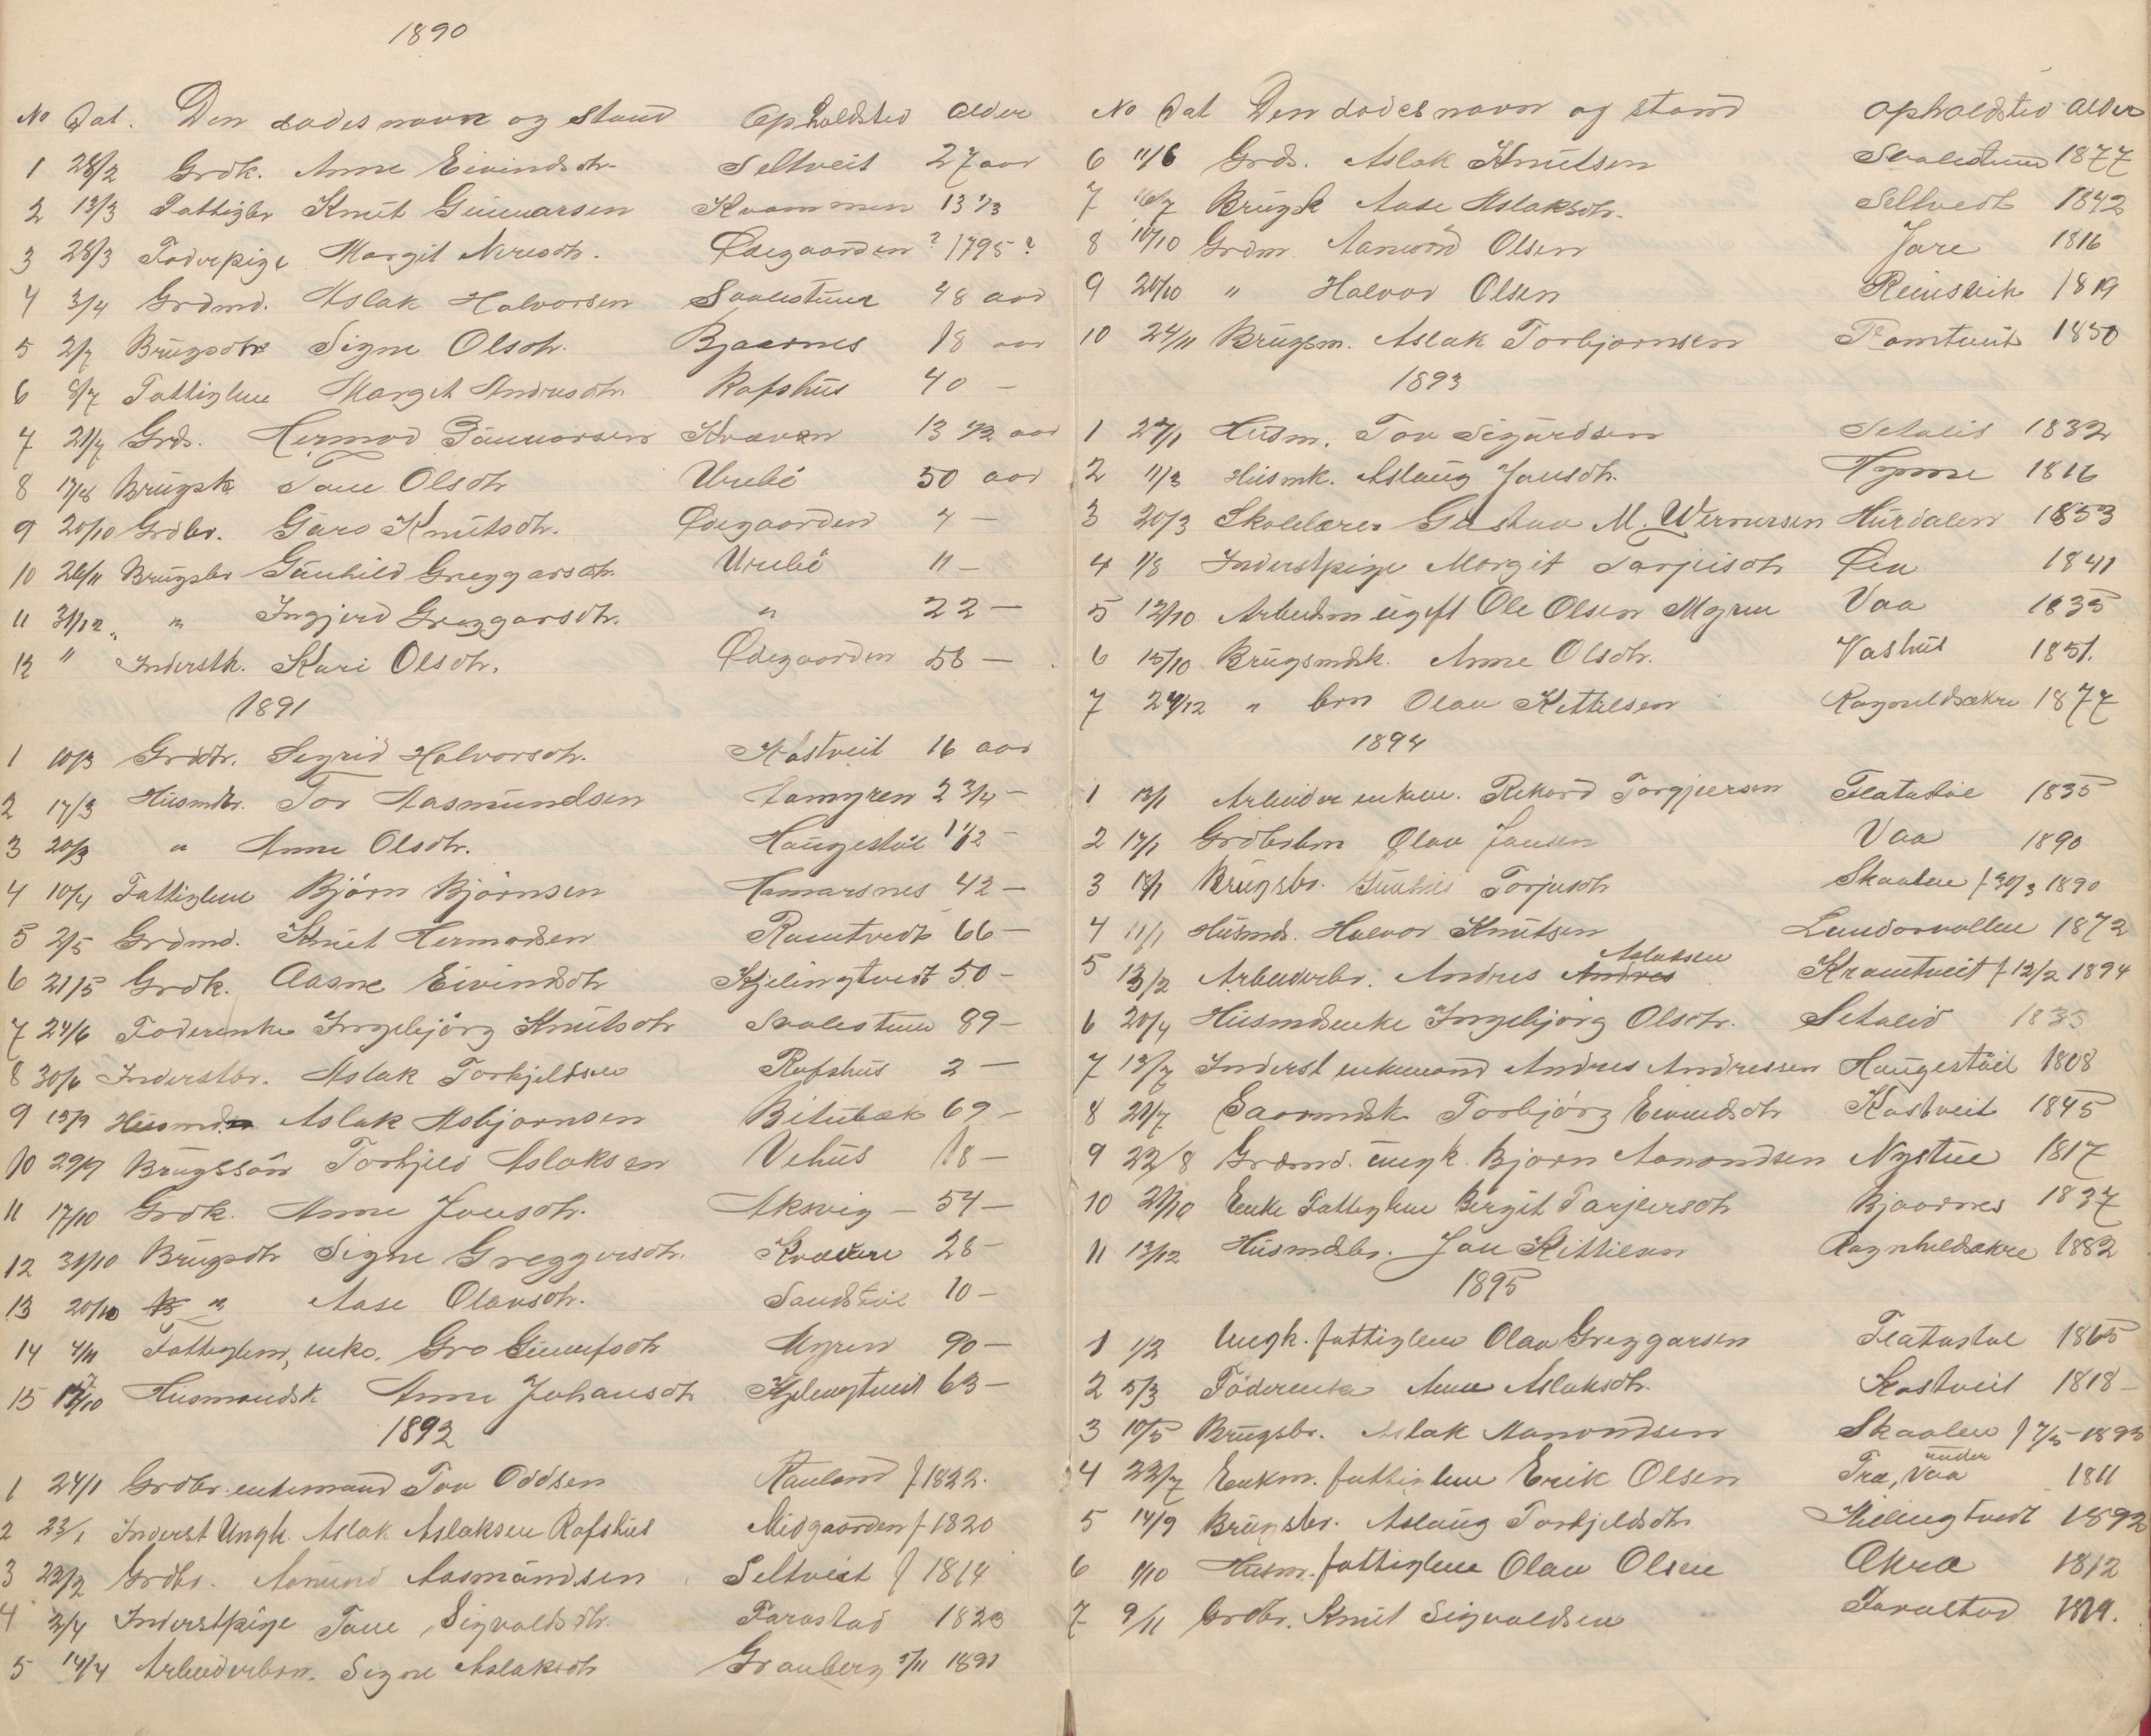 1890
No Dat. Den dødes navn og Stand Opholdsted Alder
1 28/2 Grdk. Anne Eivindsdtr. Seltveit 27 aar
2 13/3 Fattigbr Knut Gunnarsen Kvammen 13 1/3
3 28/3 Foderpige Margit Neresdtr. Ødegaarden ? 1795 ?
4 3/4 Grdmd. Aslak Halvorsen 48 aar
5 2/7 Signe Olsdtr. Bjaarnes 18 aar
6 8/7 Fattiglem Margit Andresdtr. Rafshus 40 —
7 21/7 Grds. Hermod Gunnarsen 13 1/2 aar
8 17/8 Brugsk. Tone Olsdtr Urebø 50 aar
9 20/10 Grdbr. Garo Knutsdtr. Ødegaarden 4 —
10 26/11 Brugsbr Gunhild Greggarsdtr. Urebø 11 —
11 31/12 " " Ingjerd Greggarsdtr. " 22 —
12 " Inderstk. Kari Olsdtr. Ødegaarden 58 —
1891
1 10/3 Grddtr. Sigrid Halvorsdtr. Kostveit 16 aar
2 17/3 Husmdbr. Tor Aasmundsen 2 3/4 —
3 20/3 " Anne Olsdtr. Haugestøl 1 1/2 —
4 10/4 Fattiglem Bjørn Bjørnsen Hamarsnes 42 —
5 2/5 Grdmd. Knut Hermodsen Ramtvedt 66 —
6 21/5 Grdk. Aasne Eivindsdtr Kjelingtvedt 50 —
7 24/6 Foderenke Ingebjørg Knutsdtr 89 —
8 30/6 Inderstbr. Aslak Torkjeldsen Rafshus 2 —
9 15/9 Husmd. Aslak Asbjørnsen Bitubæk 69 —
10 29/9 Brugssøn Torkjeld Aslaksen Vehus 18 —
11 17/10 Grdk. Anne Jonsdtr. Aksvig — 54 —
12 31/10 Brugsdtr Signe Greggersdtr. 28 —
13 20/10 " Aase Olavsdtr. Sandstøl 10 —
14 4/11 Fattiglem, enke. Gro Gunulfsdtr Myren 90 —
15 17/10 Husmandsk Anne Johansdtr Kjelingtveit 63 —
1892
1 24/1 Grdbr. enkemand Tov Oddsen Rauland f 1822.
2 23/1 Inderst Ungk. Aslak Aslaksen Rafshus Midgaarden f 1820
3 22/2 Grdbr. Aamund Aasmundsen Seltveit f 1814
4 2/4 Inderstpige Tone Sigvaldsdtr. Farastad 1823
5 14/4 Arbeiderbrn. Signe Aslaksdtr Grauberg 5/11 1891
No Dat Den dødes navn og stand Opholdsted Alder
6 11/6 Grds. Aslak Knutsen 1877
7 16/7 Brugsk Aase Aslaksdtr. Seltvedt 1842
8 10/10 Grdm Aamund Olsen Jare 1816
9 20/10 " Halvor Olsen Reinsvik 1819
10 24/11 Brugsm. Aslak Torbjørnsen Ramtveit 1850
1893
1 27/1 Husm. Tov Sigurdsen Setalid 1832
2 11/3 Husmk. Aslaug Jonsdtr. 1816
3 20/3 Skolelærer Gustav M. Wernersen Hurdalen 1853
4 1/8 Inderstpige Margit Tarjeisdtr Øen 1841
5 12/10 Arbeidsm ugift Ole Olsen Myren Vaa 1835
6 15/10 Brugsmdsk. Anne Olsdtr. Vashus 1851.
7 29/12 " brn Olav Kettilsen Ragnildsakre 1877
1894
1 13/1 Arbeider enkem. Rikard Torgjersen Flatastøl 1835
2 17/1 Grdbsbrn Olav Jonsen Vaa 1890
3 18/1 Brugsbr. Gunhild Torjusdtr Skaalen f 30/3 1890
4 11/1 Husmds. Halvor Knutsen Lundarvollen 1872
5 13/2 Arbeiderbr. Andres Andres Aslaksen Kramtveit f 12/2 1894
6 20/4 Husmdsenke Ingebjørg Olsdtr. Setalid 1835
7 13/7 Inderst enkemand Andres Andresen Haugestøil 1808
8 21/7 Gaarmdsk Torbjørg Eivindsdtr Kostveit 1845
9 22/8 Grdmd. ungk. Bjørn Aamondsen Nystue 1817
10 21/10 Enke Fattiglem Birgit Tarjeisdtr Bjaarnes 1837
11 13/12 Husmdsbr. Jon Kittilsen Ragnhildsakre 1882
1895
1 1/2 Ungk. fattiglem Olav Greggarsen Flatastøl 1865
2 5/3 Føderenke Anne Aslaksdtr. Kostveit 1818 —
3 10/5 Brugsbr. Aslak Aamondsen Skaalen f 7/5 1893
4 22/7 Enkm. fattiglem Erik Olsen Træ, under Vaa 1811
5 14/9 Brugsbr. Aslaug Torkjeldsdtr Kilingtvedt 1892
6 1/10 Husm. fattiglem Olav Olsen Akra 1812
7 9/11 Grdbr. Knut Sigvaldsen 1819.